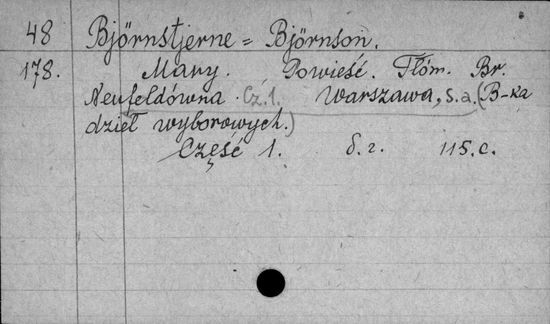 48 Björnstjerne = Björnson.
178. Mary. Powieść. Tłóm. Br.
Neufeldówna. Cz. 1. Warszawa, s.a. (B-ka
dzieł wyborowych.)
Część 1. 8. r. 115. c.